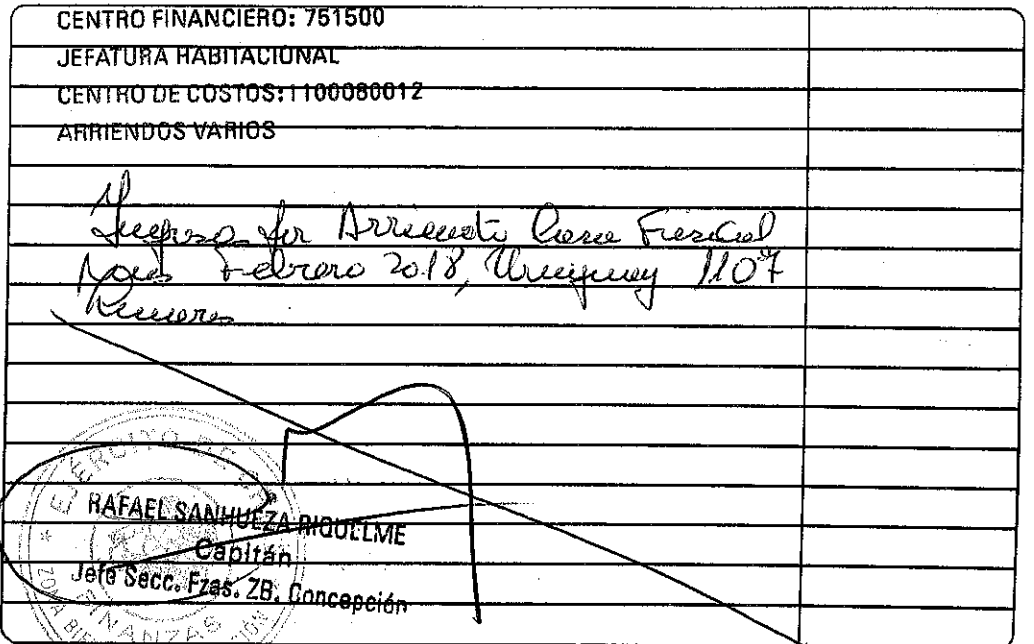 CENTRO FINANCIERO: 751500
JEFATURA HABITACIONAL
CENTRO DE COSTOS: 1100080012
ARRIENDOS VARIOS
Ingreso por Arriendo Casa Fiscal
Mes Febrero 2018, Uruguay 1107
EJÉRCITO DE
RAFAEL SANHUEZA RIQUELME
Capitán
Jefe Secc. Fzas. ZB. Concepción
FINANZAS